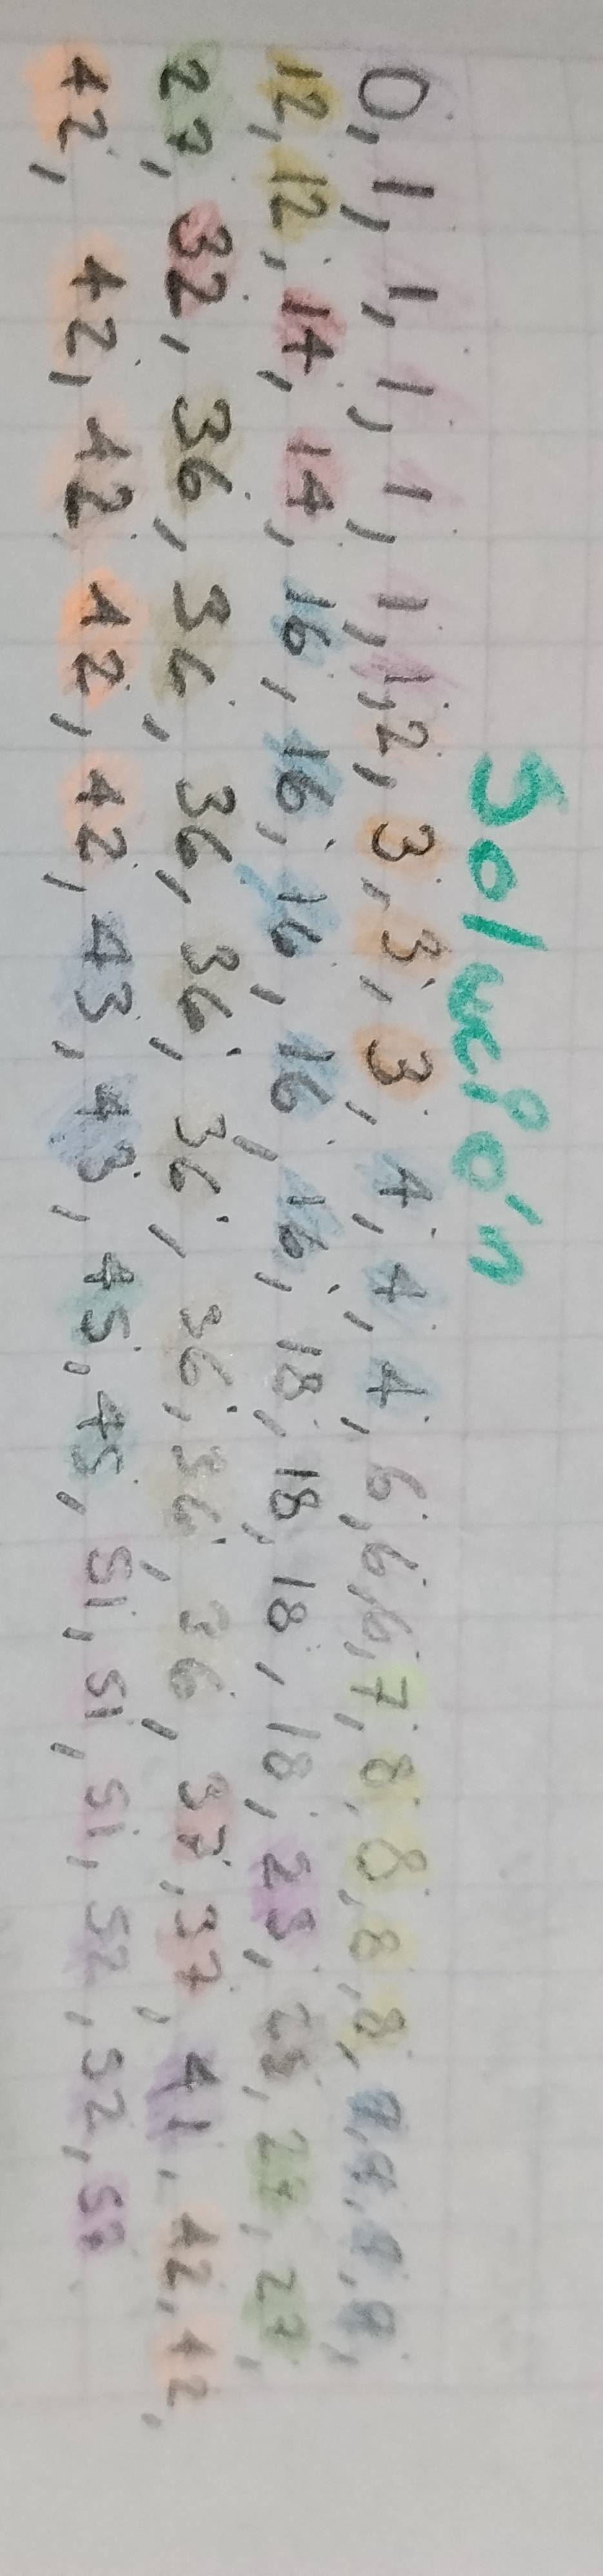 Solución
0, 1, 1, 1, 1, 1, 1, 2, 3, 3, 3, 4, 4, 4, 6, 6, 6, 7, 8, 8, 8, 8, 9, 9, 9, 9,
12, 12, 14, 14, 16, 16, 16, 16, 16, 18, 18, 18, 18, 25, 25, 27, 27,
27, 32, 36, 36, 36, 36, 36, 36, 36, 36, 37, 37, 41, 42, 42,
42, 42, 42, 42, 42, 43, 43, 45, 45, 51, 51, 51, 52, 52, 57